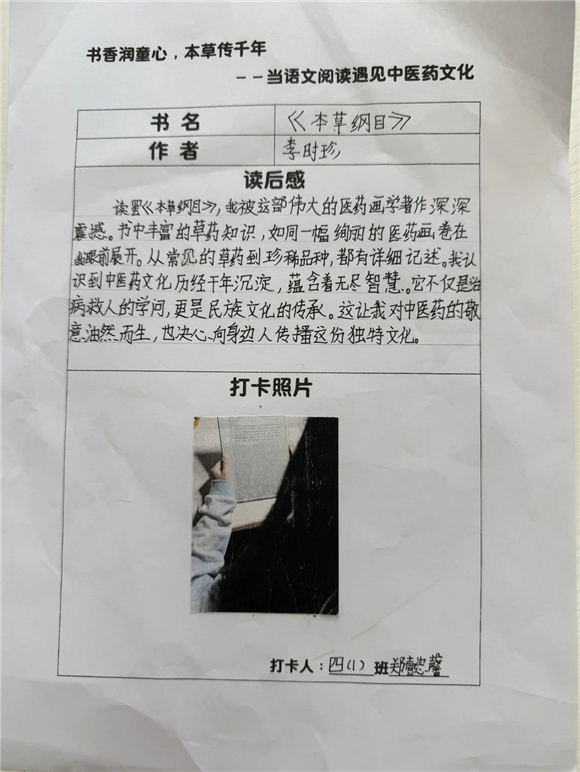 书香润童心，本草传千年
——当语文阅读遇见中医药文化
书名 《本草纲目》
作者 李时珍
读后感
读罢《本草纲目》，我被这部伟大的医药画学著作深深
震撼。书中丰富的草药知识，如同一幅绚丽的医药画卷在
我眼前展开。从常见的草药到珍稀品种，都有详细记述。我认
识到中医药文化历经千年沉淀，蕴含着无尽智慧。它不仅是治
病救人的学问，更是民族文化的传承。这让我对中医药的敬
意油然而生，也决心向身边人传播这份独特文化。
打卡照片
打卡人：四(1)班郑懿馨